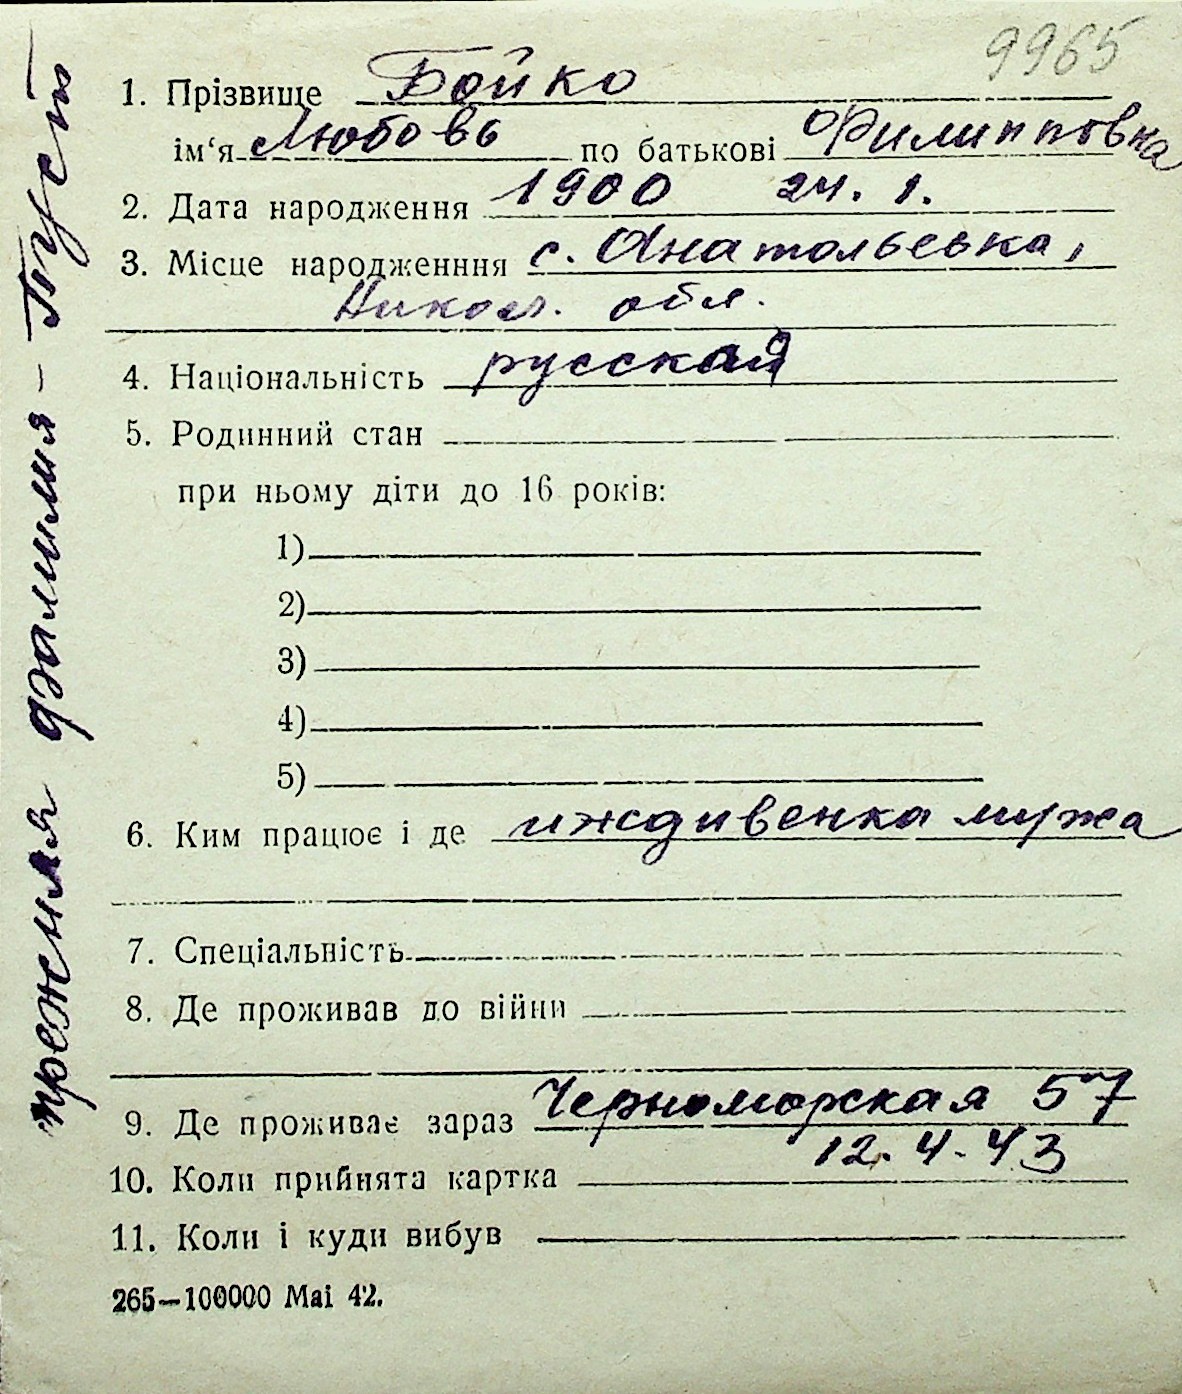 9965
1. Прізвище Бойко
ім‘я Любовь по батькові Филипповна
2. Дата народження 1900 24. 1.
3. Місце народженння с. Анатольевка,
Никол. обл.
4. Національність русская
5. Родинний стан
при ньому діти до 16 років:
1)
2)
3)
4)
5)
6. Ким працює і де иждивенка мужа
7. Спеціальність
8. Де проживав до війни
9. Де проживає зараз Черноморская 57
10. Коли прийнята картка 12. 4. 43
11. Коли і куди вибув
265—100000 Маі 42.
прежняя фамилия - Пуст